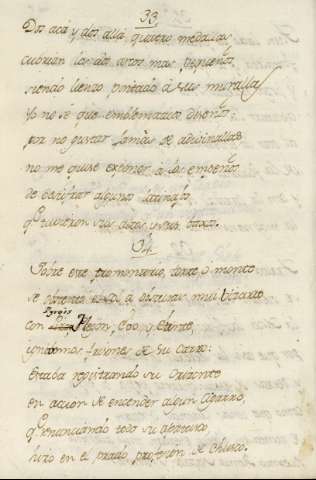 33.
Dos acá y dos allá, quatro medallas
cubrian los dos arcos mas pequeños,
siendo lienzo pintado à sus murallas
Yo no sé que emblematicos diseños,
por no gustar jamàs de adivinallas
no me quise exponer à los empeños
de descifrar algunos latinajos
qe. tuvieron sus altos, y sus baxos.
34.
Sobre este promontorio, torre ò monte
se ostenta à obscuras mui bizarro
con Pyrois Flegon, Eoo, y Etonte,
ignitomos frisones de su carro:
Estaba registrando su Orizonte
en accion de encender algun cigarro,
qe. renunciando todo su derecho
hizo en el prado profesion de